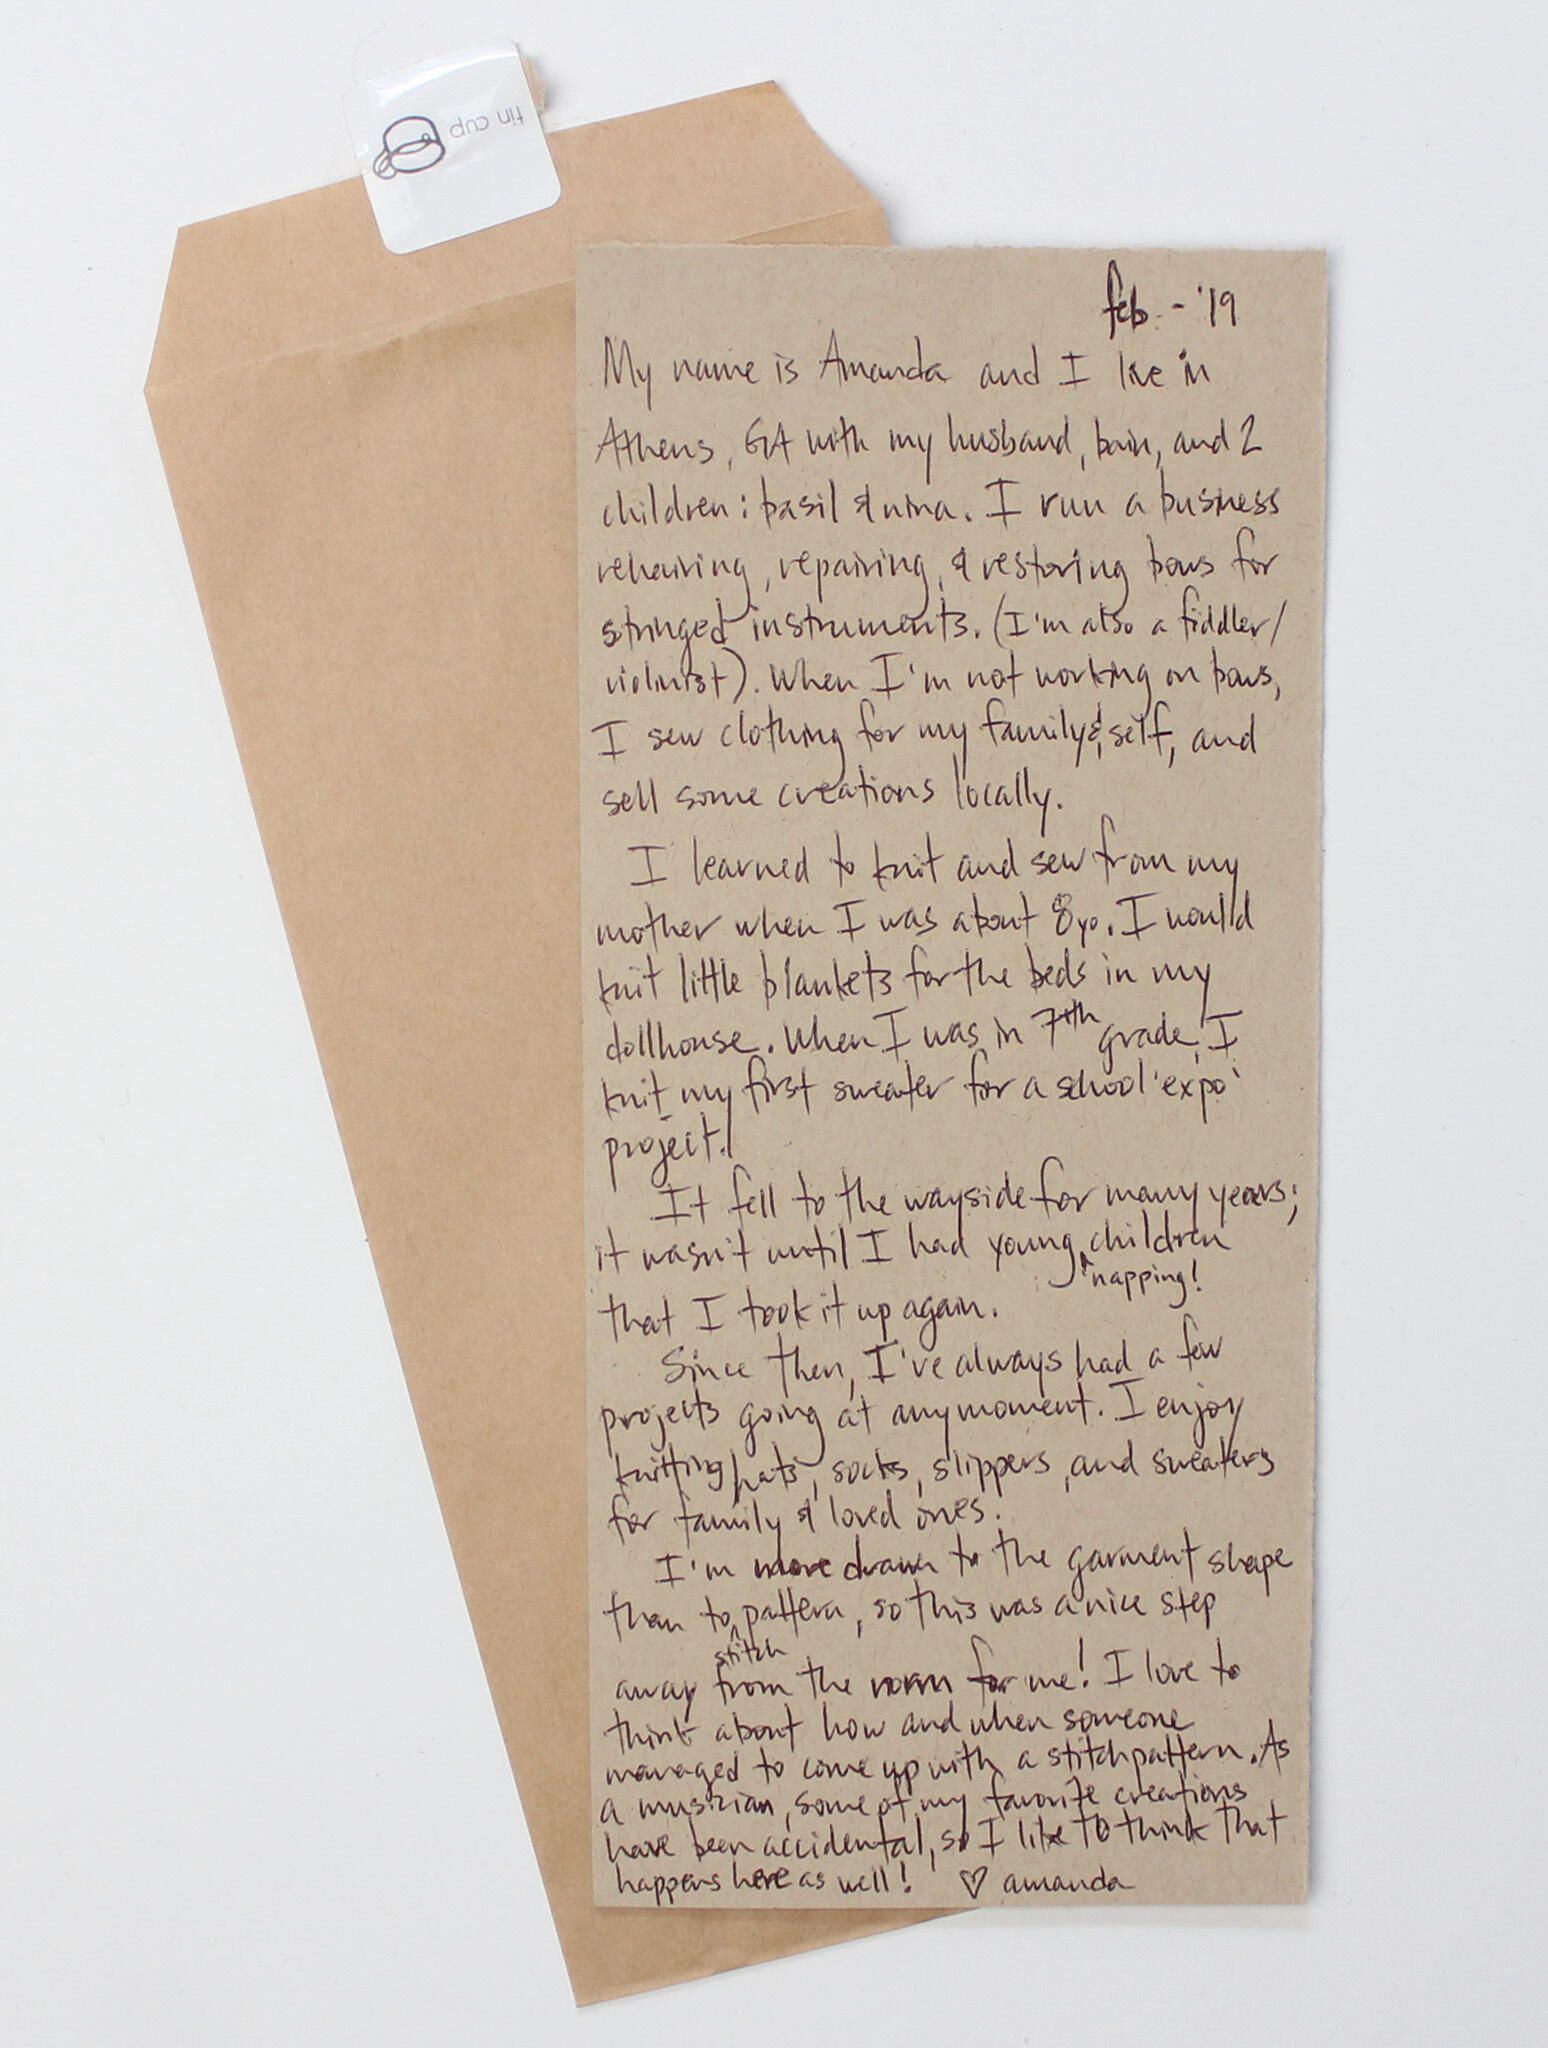 tin cup
feb - '19
My name is Amanda and I live in
Athens, GA with my husband, bain, and 2
children: basil & nina. I run a business
rehairing, repairing, & restoring bows for
stringed instruments. (I'm also a fiddler/
violinist). When I'm not working on bows,
I sew clothing for my family & self, and
sell some creations locally.
I learned to knit and sew from my
mother when I was about 8yo. I would
knit little blankets for the beds in my
dollhouse. When I was in 7th grade, I
knit my first sweater for a school 'expo'
project.
It fell to the wayside for many years;
it wasn't until I had young ^ children
napping!
that I took it up again.
Since then, I've always had a few
projects going at any moment. I enjoy
knitting hats, socks, slippers, and sweaters
for family & loved ones.
I'm more drawn to the garment shape
than to ^ pattern, so this was a nice step
stitch
away from the norm for me! I love to
think about how and when someone
managed to come up with a stitch pattern. As
a musician, some of my favorite creations
have been accidental, so I like to think that
happens here as well! ♡ amanda